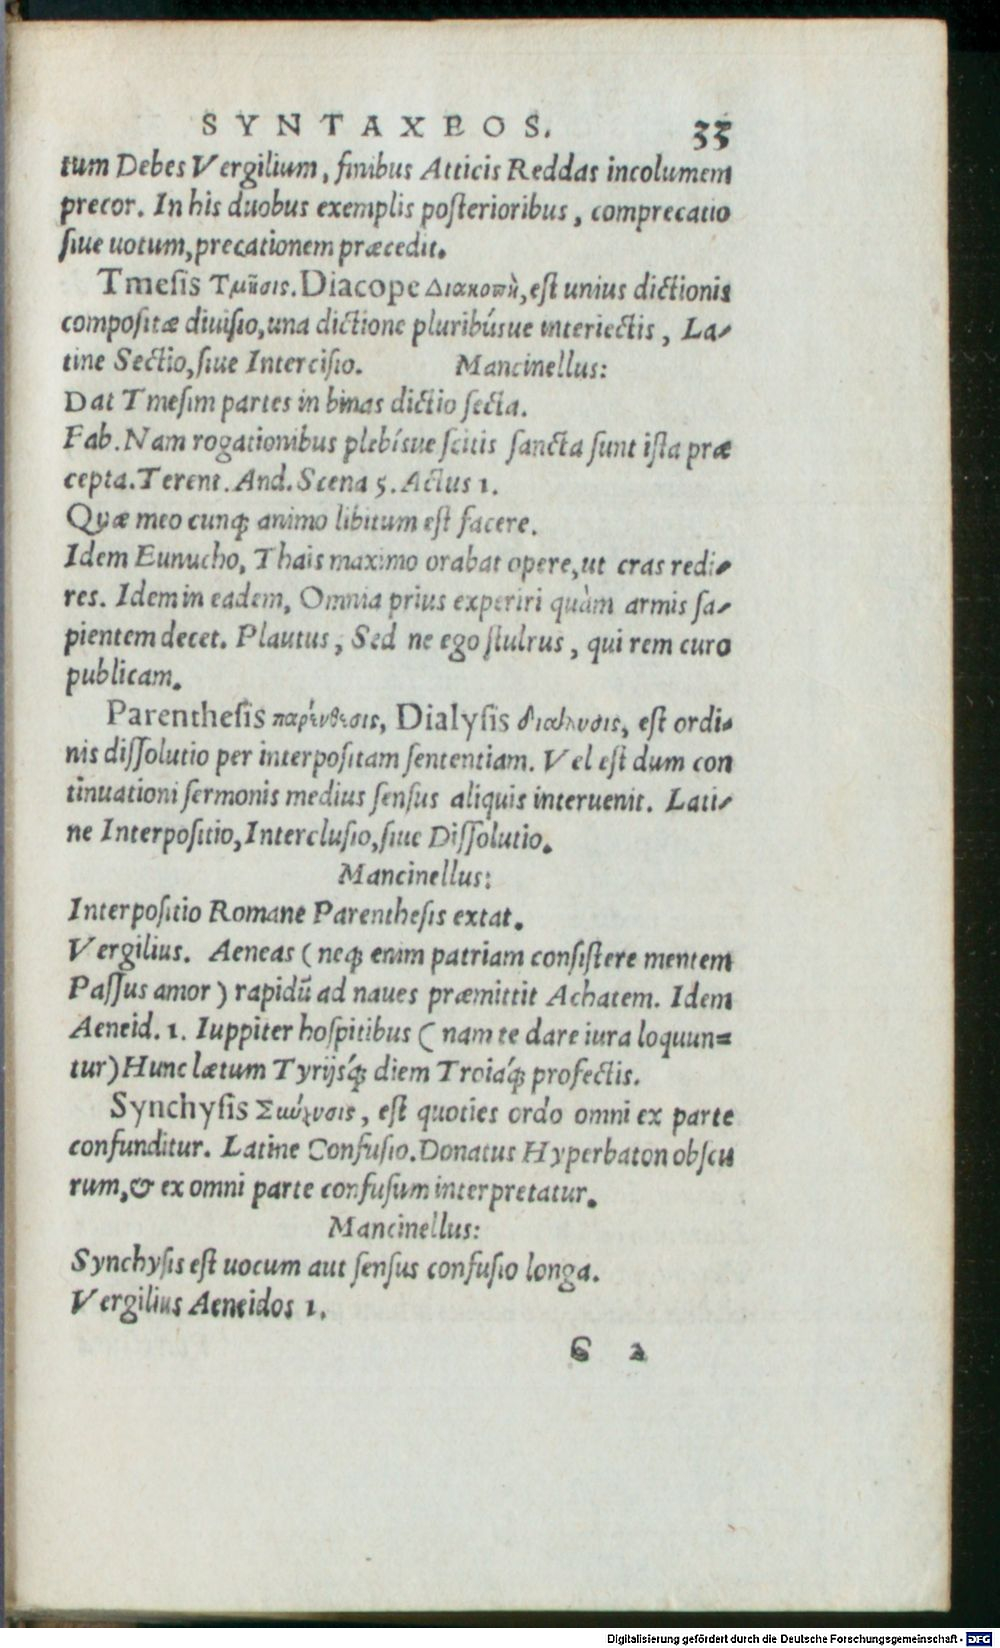 SYNTAXEOS. 33
tum Debes Vergilium, finibus Atticis Reddas incolumem
precor. In his duobus exemplis posterioribus, comprecatio
siue uotum, precationem præcedit.
Tmesis Τμῆσις. Diacope Διακοπὴ, est unius dictionis
compositæ diuisio, una dictione pluribúsue interiectis, La-
tine Sectio, siue Intercisio. Mancinellus:
Dat Tmesim partes in binas dictio secta.
Fab. Nam rogationibus plebísue scitis sancta sunt ista præ
cepta. Terent. And. Scena 5. Actus 1.
Quæ meo cunq; animo libitum est facere.
Idem Eunucho, Thais maximo orabat opere, ut cras redi-
res. Idem in eadem, Omnia prius experiri quàm armis sa-
pientem decet. Plautus, Sed ne ego stulrus, qui rem curo
publicam.
Parenthesis παρένθεσις, Dialysis διάλυσις, est ordi-
nis dissolutio per interpositam sententiam. Vel est dum con
tinuationi sermonis medius sensus aliquis interuenit. Lati-
ne Interpositio, Interclusio, siue Dissolutio.
Mancinellus:
Interpositio Romane Parenthesis extat.
Vergilius. Aeneas (neq; enim patriam consistere mentem
Passus amor) rapidū ad naues præmittit Achatem. Idem
Aeneid. 1. Iuppiter hospitibus (nam te dare iura loquun=
tur) Hunc lætum Tyrijsq́; diem Troiáq́; profectis.
Synchysis Σύγχυσις, est quoties ordo omni ex parte
confunditur. Latine Confusio. Donatus Hyperbaton obscu
rum, & ex omni parte confusum interpretatur.
Mancinellus:
Synchysis est uocum aut sensus confusio longa.
Vergilius Aeneidos 1.
G 2
Digitalisierung gefördert durch die Deutsche Forschungsgemeinschaft - DFG